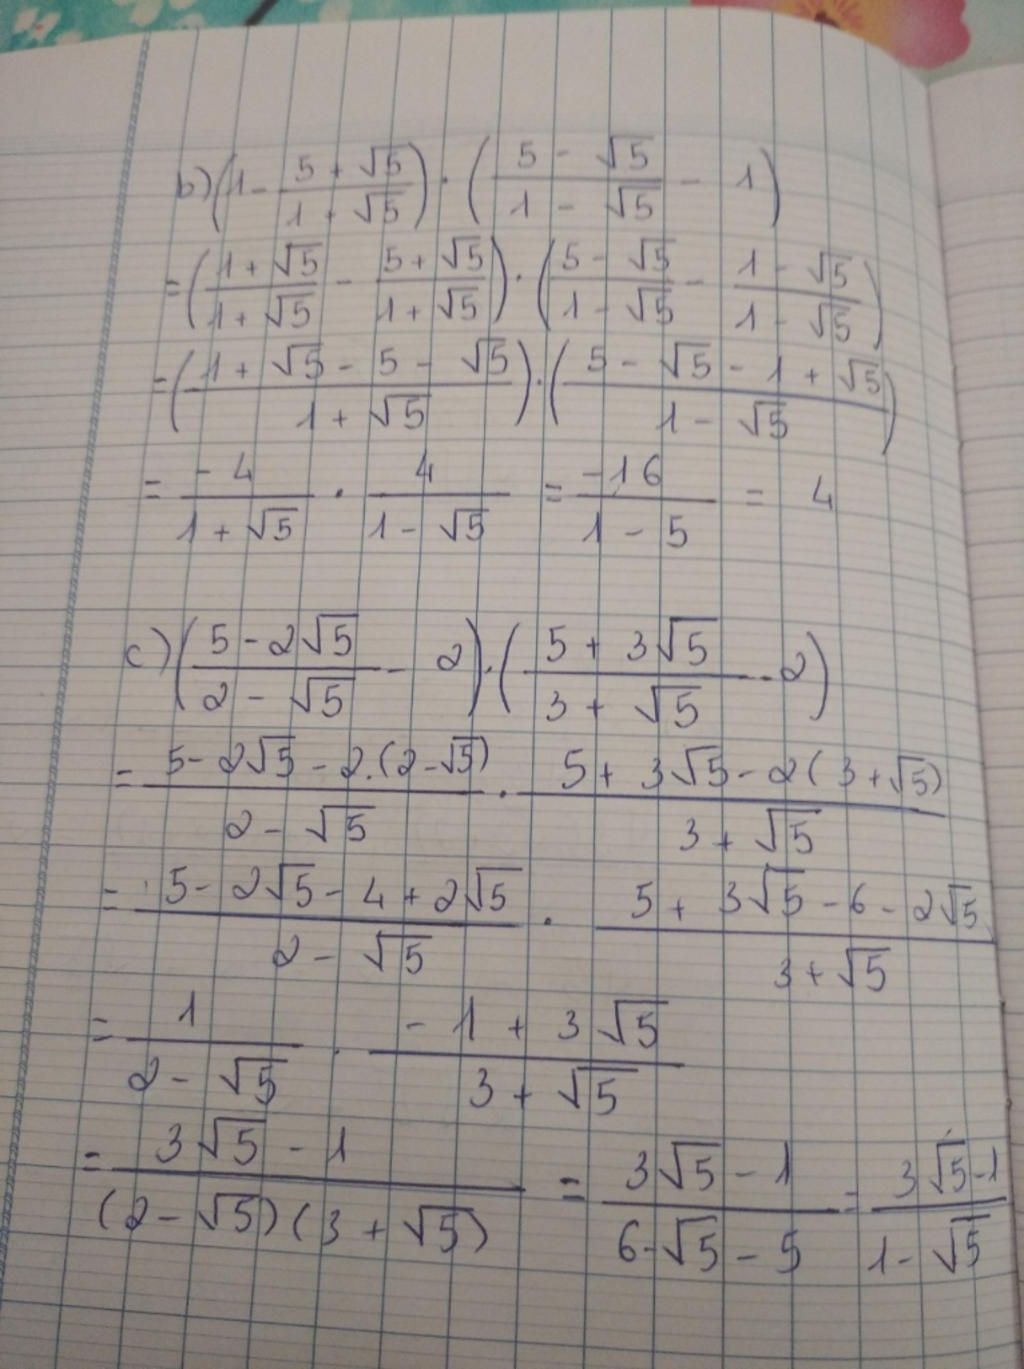 b) (1 - (5 + √5)/(1 + √5)) . ((5 - √5)/(1 - √5) - 1)
= ((1 + √5)/(1 + √5) - (5 + √5)/(1 + √5)) . ((5 - √5)/(1 - √5) - (1 - √5)/(1 - √5))
= ((1 + √5 - 5 - √5)/(1 + √5)) . ((5 - √5 - 1 + √5)/(1 - √5))
= (-4)/(1 + √5) . 4/(1 - √5) = (-16)/(1 - 5) = 4
c) ((5 - 2√5)/(2 - √5) - 2) . ((5 + 3√5)/(3 + √5) - 2)
= (5 - 2√5 - 2.(2 - √5))/(2 - √5) . (5 + 3√5 - 2(3 + √5))/(3 + √5)
= (5 - 2√5 - 4 + 2√5)/(2 - √5) . (5 + 3√5 - 6 - 2√5)/(3 + √5)
= 1/(2 - √5) . (-1 + 3√5)/(3 + √5)
= (3√5 - 1)/((2 - √5)(3 + √5)) = (3√5 - 1)/(6 - √5 - 5) = (3√5 - 1)/(1 - √5)